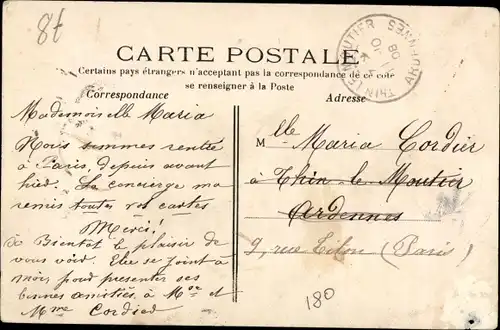 8t
THIN LE MOUTIER
ARDENNES
CARTE POSTALE
Certains pays étrangers n'acceptent pas la correspondance de ce coté
se renseigner à la Poste
Correspondance
Adresse
Mademoiselle Maria
Nous sommes rentrée
à Paris, depuis avant
hied. La concierge ma
remis toutes vos cartes
Merci!
à Bientot le plaisir de
vous voir. Elle se joint à
moi, poud presenter ses
bonnes amitiés, à Mor et
Mme Cordied
Mlle Maria Cordier
à Thin-le-Moutier
Ardennes
9, rue Titon (Paris)
180